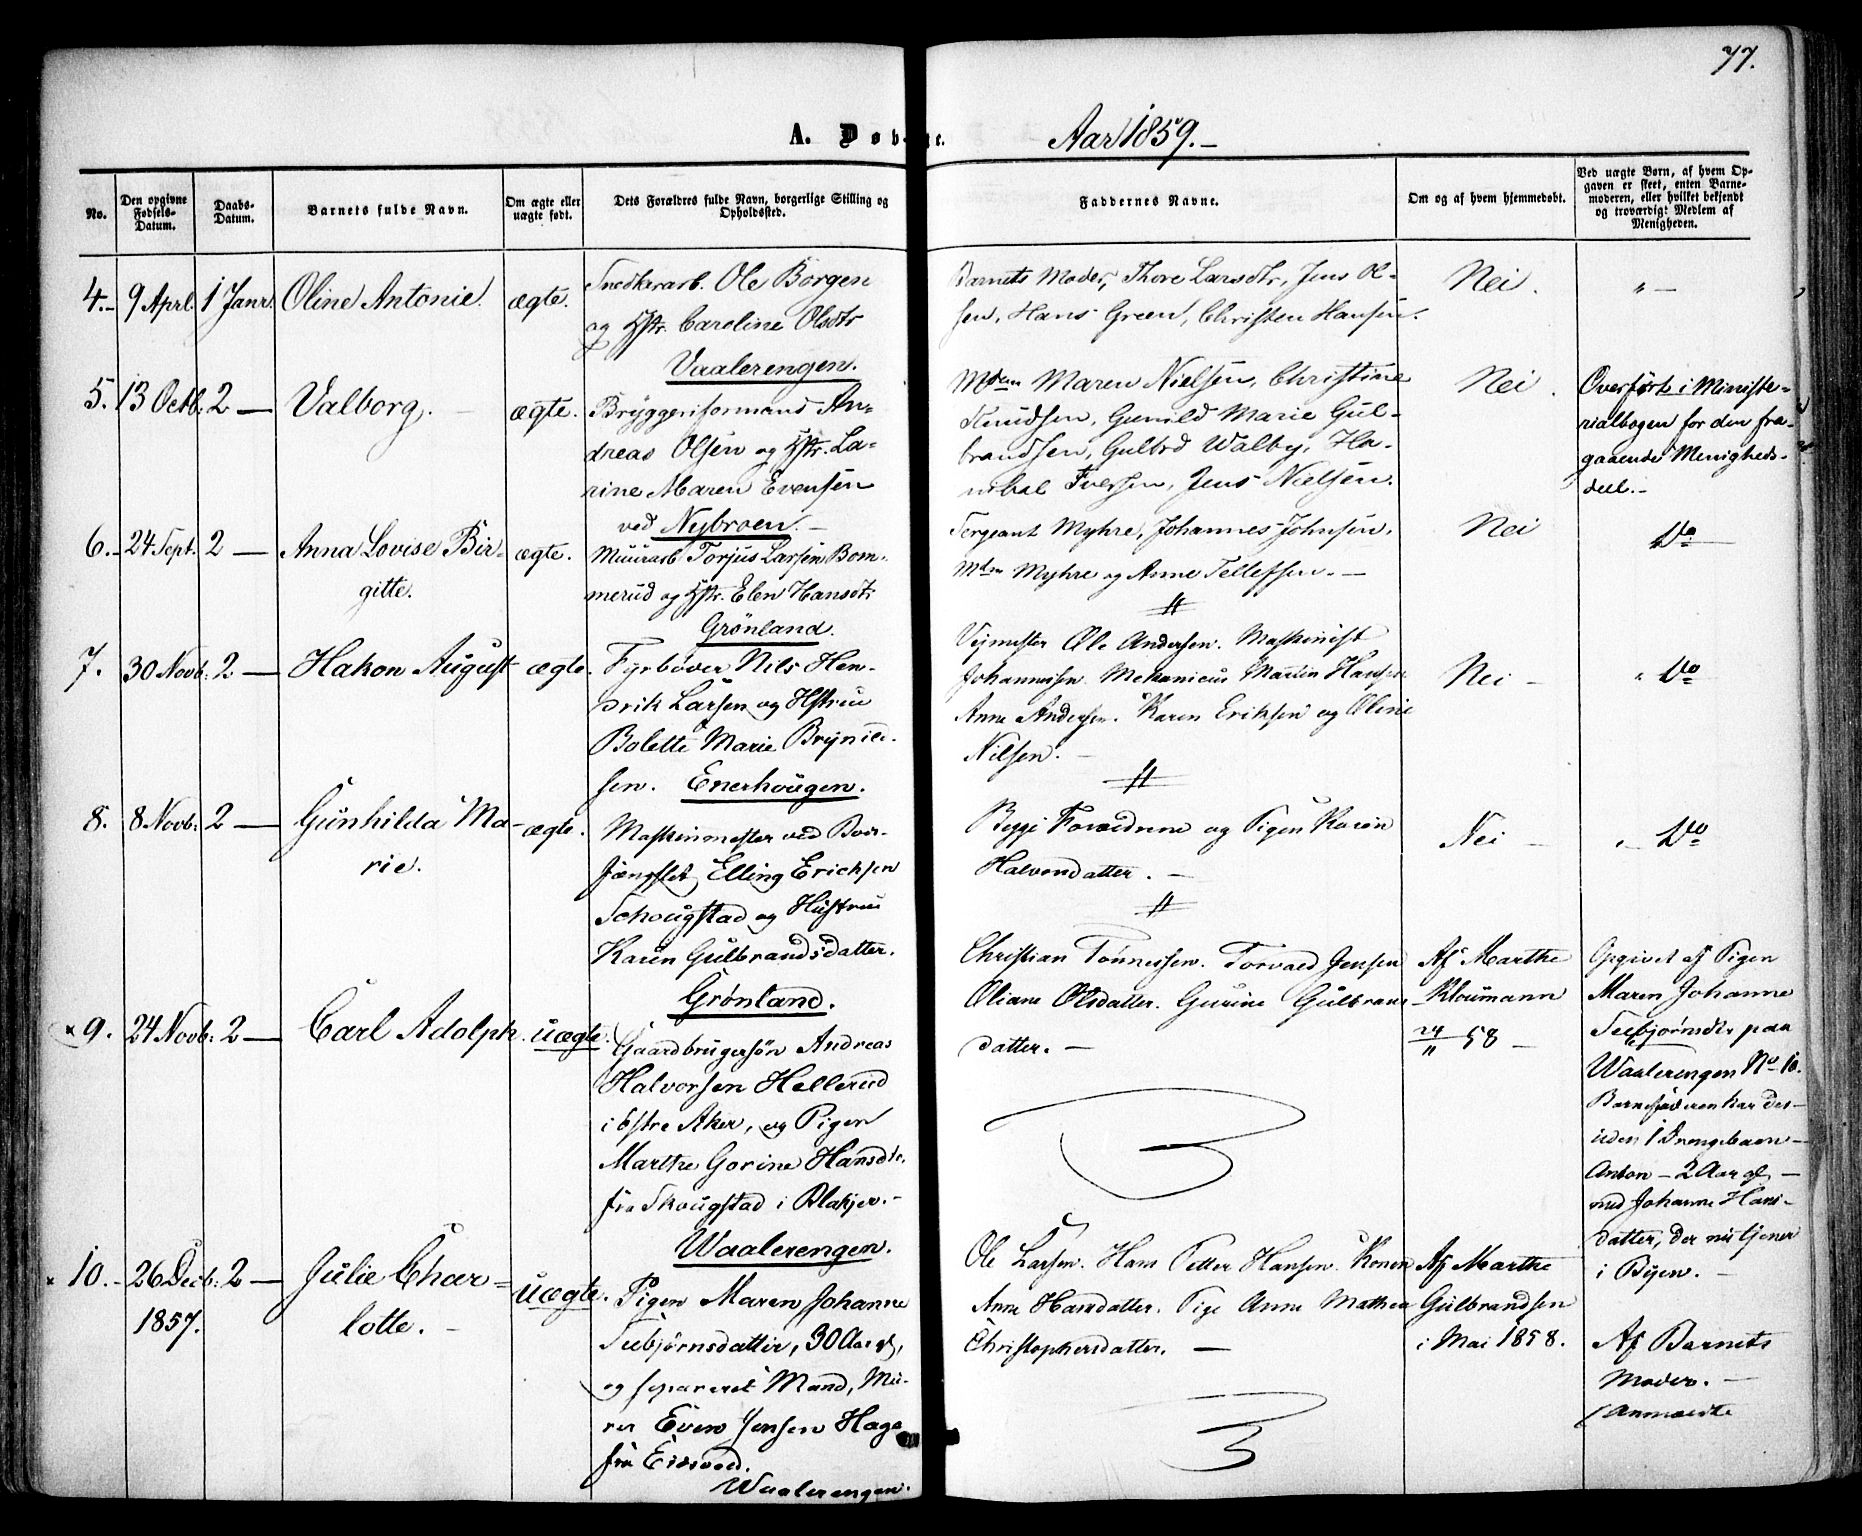 77.
A. Døb    te. Aar 1859.-
No.
Den opgivne Fødsels-Datum.
Daabs-Datum.
Barnets fulde Navn.
Om ægte eller uægte født.
Dets Forældres fulde Navn, borgerlige Stilling og Opholdssted.
Faddernes Navne.
Om og af hvem hjemmedøbt.
Ved uægte Børn, af hvem Opgaven er skeet, enten Barnemoderen, eller hvilket bekjendt og troværdigt Medlem af Menigheden.
4.- 9 Apl. 1 Janr. Oline Antonie. ægte.
Snedkerarb. Ole Borgen
og Hstr. Caroline Olsdtr
Vaalerengen.
Barnets Moder, Thore Larsdtr, Jens Ol-
sen, Hans Green, Christen Hansen.
Nei. " -
5. 13 Octb. 2 - Valborg. - ægte.
Bryggeriformand An-
dreas Olsen og Hstr. La-
rine Maren Evensen
ved Nybroen. -
Mdm Maren Nielsen, Christine
Knudsen, Gunild Marie Gul-
brandsen, Gulbrd Walby, Ha-
nibal Iversen, Jens Nielsen.
Nei.
Overført i Ministe-
rialbogen for den fra-
gaaende Menigheds-
deel. -
6.- 24 Sept. 2 - Anna Lovise Bir-
gitte.
ægte.
Muurarb Torjus Larsen Bom-
merud og Hstr. Elen Hansdtr
Grønland.
Sergeant Myhre, Johannes Johnsen,
Mdm Myhre og Anne Tellefsen. -
Nei
Do
7. 30 Novb: 2 - Hakon August ægte.
Fyrbøver Nils Hen-
drik Larsen og Hstrue
Bolette Marie Brynild-
sen. Enerhougen.
Vejmester Ole Andersen. Maskinist
Johannessen. Mekanicus Martin Hansen
Anne Andersen. Karen Eriksen og Oline
Nilsen. -
Nei -
" Do
8. 8 Novb: 2 - Gunhilda Ma-
rie.
ægte.
Maskinmester ved Bod-
fængslet, Elling Ericksen
Schougstad og Hustrue
Karen Gulbrandsdatter.
Grønland.
Begge Forældrene og Pigen Karen
Halvorsdatter. -
Nei -
" Do
x 9. 24 Novb: 2 - Carl Adolph. uægte.
Gaardbrugersøn Andreas
Halvorsen Hellerud
i Østre Aker, og Pigen
Marthe Gorine Hansdtr.
fra Skougstad i Blakjer. -
Waalerengen.
Christian Tønnessen. Torvald Jensen
Oliane Olsdatter. Gurine Gulbrans-
datter. -
Af Marthe
Kloumann
24/11 58 -
Opgivet af Pigen
Maren Johanne
Seebjørnsdtr paa
Waalerengen No 10.
Barnefaderen har des-
uden 1 Drengebarn -
Anton - 2 Aar gl. -
med Johanne Hans-
datter, der nu tjener
i Byen. -
x 10. - 26 Decb: 2 - Julie Char-
1857. lotte. -
uægte.
Pigen Maren Johanne
Seebjørnsdatter, 30 Aar gl,
og separeret Mand, Mu-
rer Even Jensen Haga
fra Eidsvold.
Waalerengen.
Ole Larsen. Hans Petter Hansen. Konen
Anne Hansdatter. Pige Anne Mathea
Christophersdatter. -
Af Marthe
Gulbrandsen
i Mai 1858.
Af Barnets
Moder. -